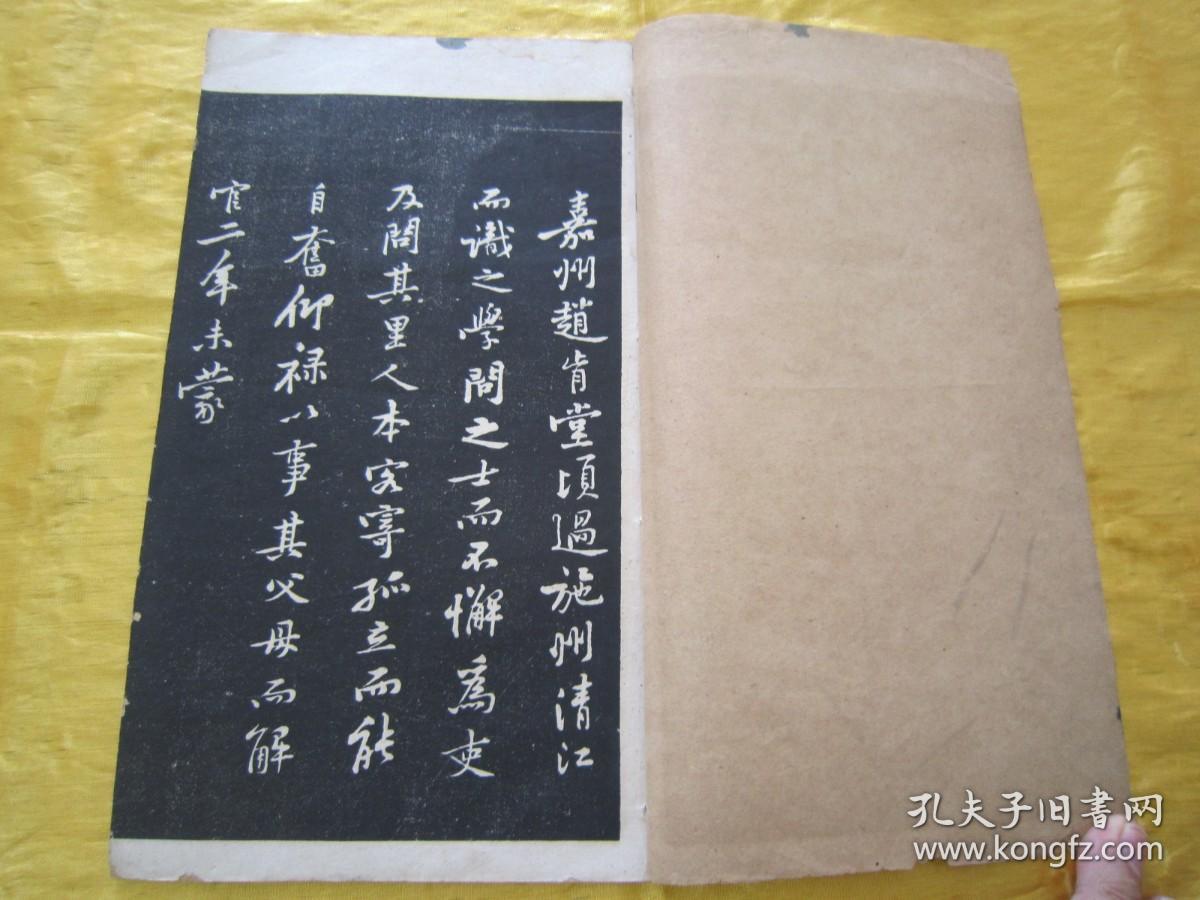 嘉州趙肯堂頃過施州清江
而識之學問之士而不懈爲吏
及問其里人本客寄孤立而能
自奮仰禄以事其父母而解
官二年未蒙
孔夫子旧書网
www.kongfz.com